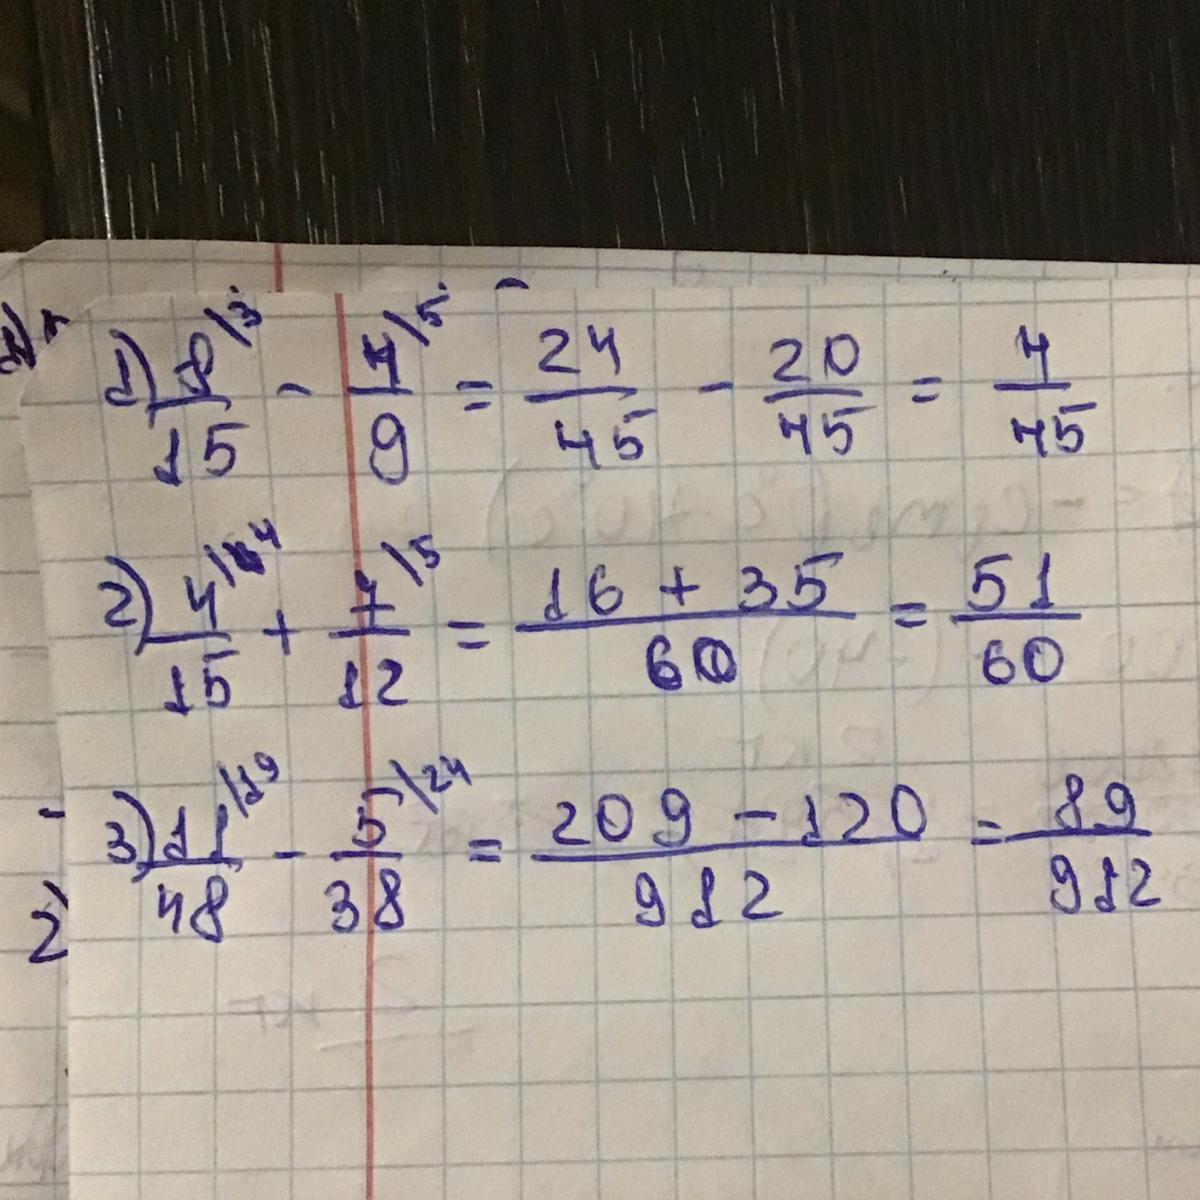 1) 8/15 \3 - 4/9 \5 = 24/45 - 20/45 = 4/45
2) 4/15 \4 + 7/12 \5 = (16 + 35)/60 = 51/60
3) 11/48 \19 - 5/38 \24 = (209 - 120)/912 = 89/912
2)